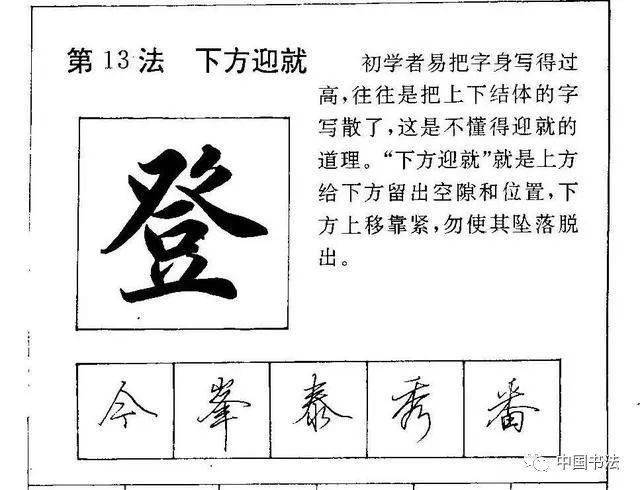 第13法 下方迎就
初学者易把字身写得过
高，往往是把上下结体的字
写散了，这是不懂得迎就的
道理。“下方迎就”就是上方
给下方留出空隙和位置，下
方上移靠紧，勿使其坠落脱
出。
登
今 峯 泰 秀 番
中国书法